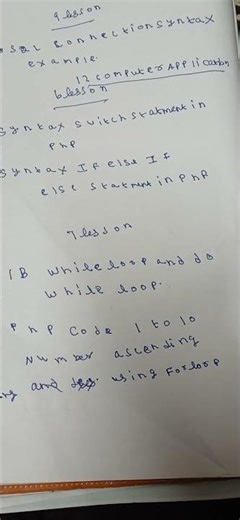 9 lesson
sql connection syntax
example.
12 computer APPlication
6 lesson
syntax switch statment in
PhP
syntax If else If
else statment in PhP
7 lesson
1B while loop and do
while loop.
PhP Code 1 to 10
Number ascending
and using For loop